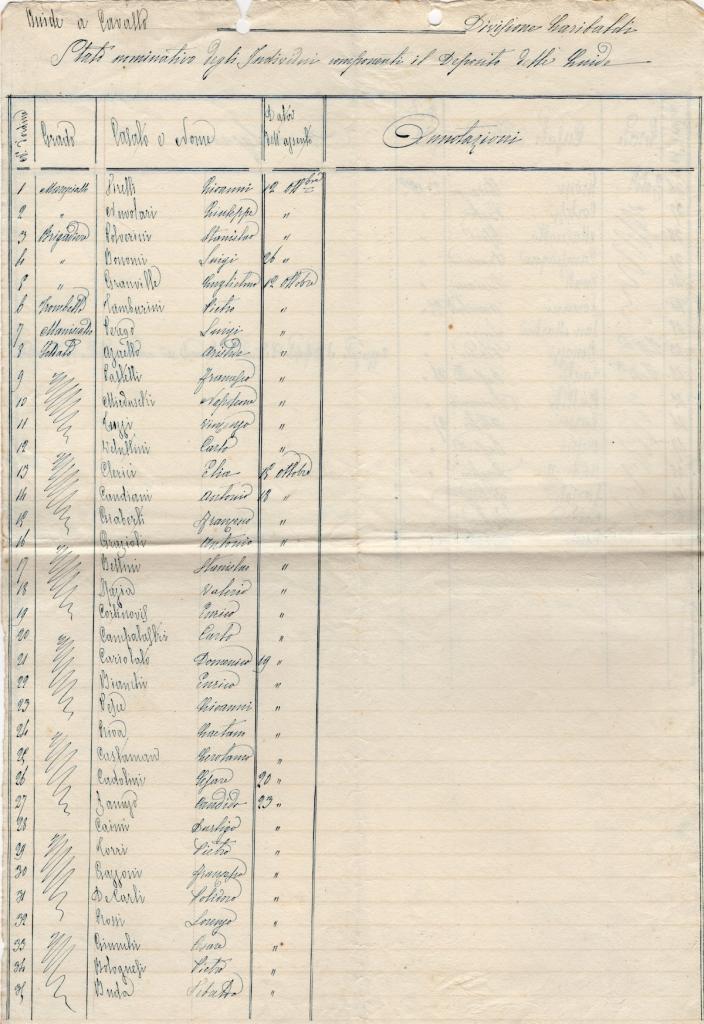 Guide a Cavallo Divisione Garibaldi
Stato nominativo degli Individui componenti il Deposito delle Guide
N° d'ordine Grado Casato e Nome Data dell'assento Annotazioni
1 Giovanni 12 Ottobre
2 " Nuvolari Giuseppe "
3 Brigadiere Polverini Stanislao "
4 " Bonomi Luigi 26 "
5 " Granville Guglielmo 12 Ottobre
6 Trombetta Tamburini Pietro "
7 Maniscalco Perego Luigi "
8 Soldato Aristide "
9 Francesco "
10 Napoleone "
11 Vincenzo "
12 Carlo "
13 Clerici Elia 12 Ottobre
14 Candiani Antonio 18 "
15 Francesco "
16 Grazioli Antonio "
17 Bettini Stanislao "
18 Valerio "
19 Cortinovis Enrico "
20 Carlo "
21 Cariolato Domenico 19 "
22 Bianchi Enrico "
23 Pesce Giovanni "
24 Riva Gaetano "
25 "
26 Cadolini Cesare 20 "
27 Candido 23 "
28 Caimi "
29 Torri Pietro "
30 Bazzoni Francesco "
31 De Carli Polidoro "
32 Rossi Lorenzo "
33 Cesare "
34 Bolognesi Pietro "
35 Buda "